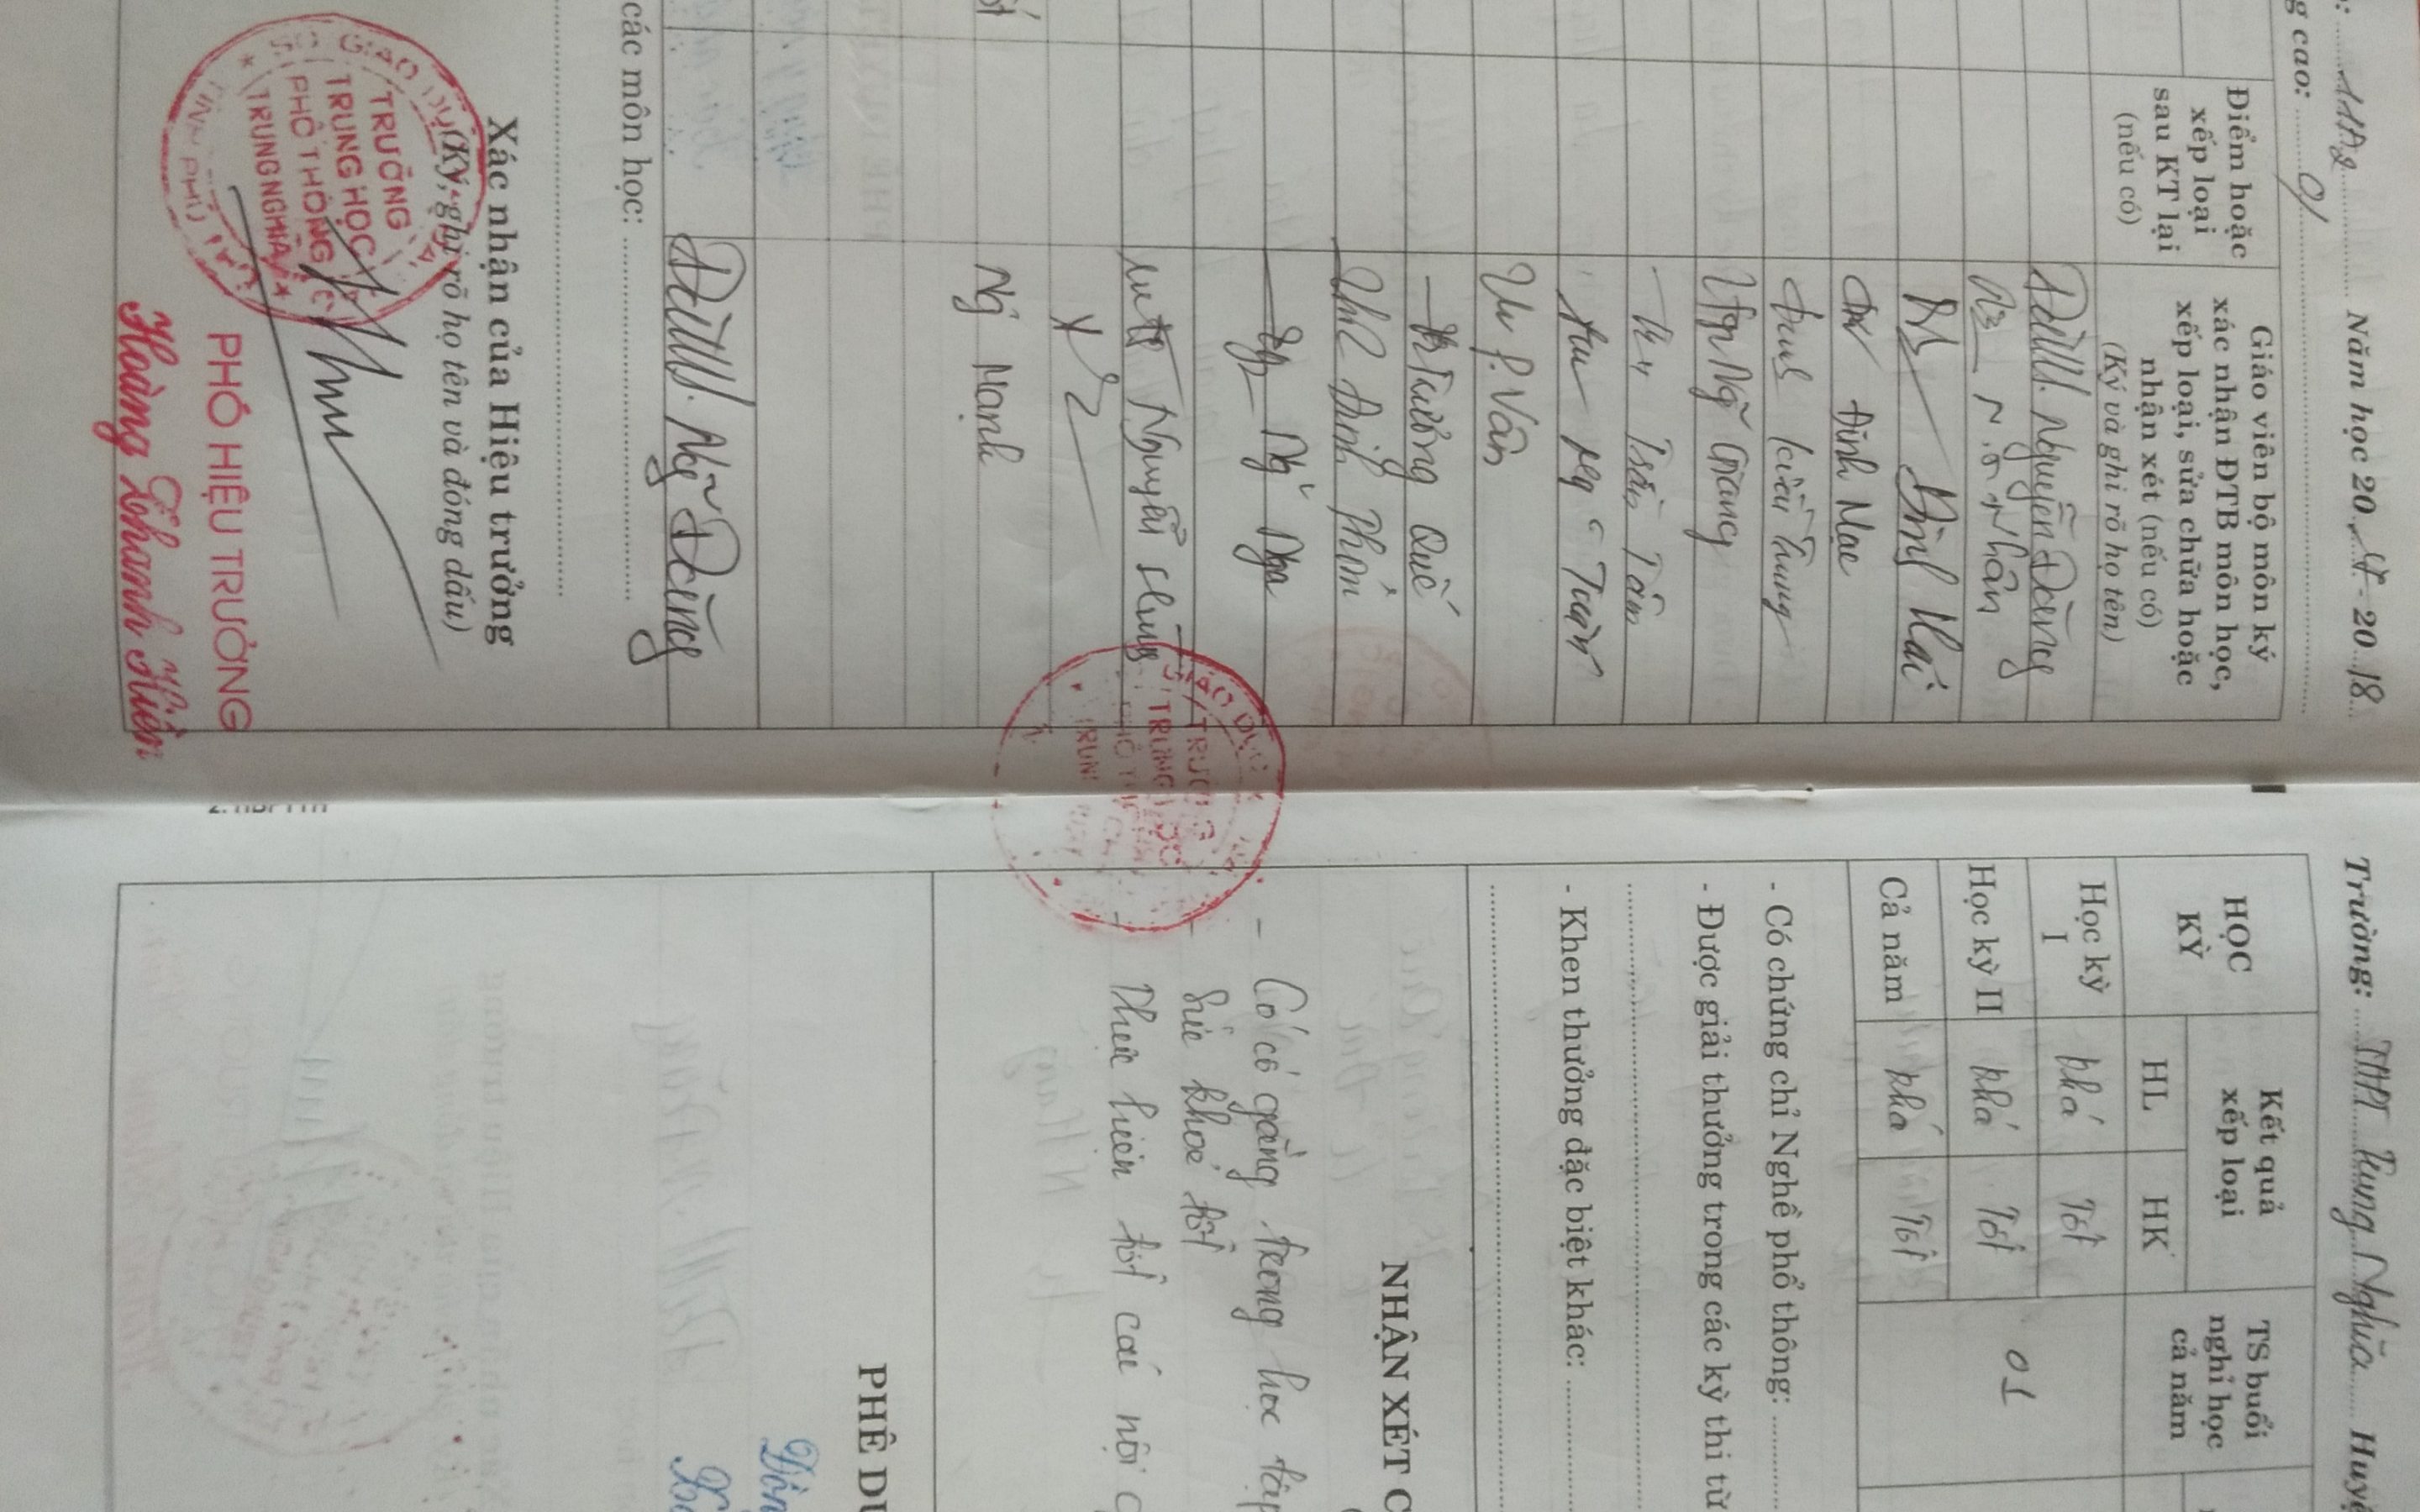 11A2 Năm học 2017 - 2018
g cao: 0/
Điểm hoặc
xếp loại
sau KT lại
(nếu có)
Giáo viên bộ môn ký
xác nhận ĐTB môn học,
xếp loại, sửa chữa hoặc
nhận xét (nếu có)
(Ký và ghi rõ họ tên)
Nguyễn Đăng
Nhân
Đình Hải
Đình Nạc
Kiều Trung
Ngũ Giang
Trần Tâm
Ng Tuân
Vu P. Vân
Tường Quế
Đinh Phẩm
Ng Nga
Nguyễn Hùng
Ng Mạnh
các môn học:
Xác nhận của Hiệu trưởng
(Ký, ghi rõ họ tên và đóng dấu)
SỞ GIÁO DỤC
TRƯỜNG
TRUNG HỌC
PHỔ THÔNG
TRUNG NGHĨA
PHÓ HIỆU TRƯỞNG
Hoàng Thanh Hiền
GIÁO DỤC
TRƯỜNG
TRUNG HỌC
PHỔ THÔNG
Trường: THPT Trung Nghĩa Huyệ
HỌC
KỲ
Kết quả
xếp loại
TS buổi
nghỉ học
cả năm
HL HK
Học kỳ
I
Khá Tốt
01
Học kỳ II Khá Tốt
Cả năm Khá Tốt
- Có chứng chỉ Nghề phổ thông:
- Được giải thưởng trong các kỳ thi từ
- Khen thưởng đặc biệt khác:
NHẬN XÉT C
- Có cố gắng trong học tập
- Sức khoẻ tốt
- Thực hiện tốt các nội
PHÊ DU